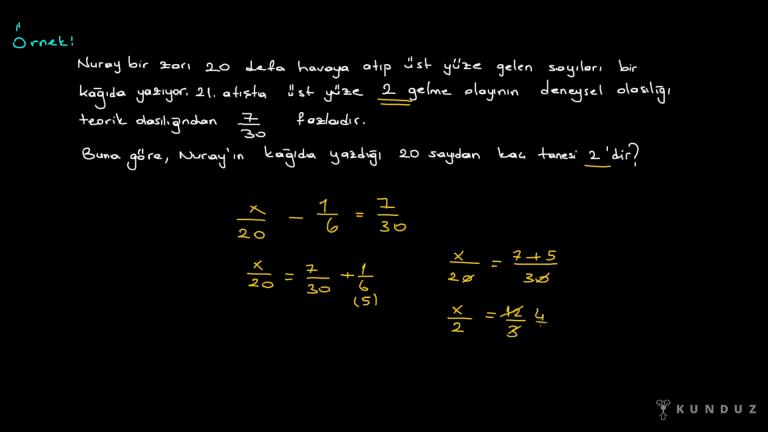 Örnek!
Nuray bir zarı 20 defa havaya atıp üst yüze gelen sayıları bir
kağıda yazıyor. 21. atışta üst yüze 2 gelme olayının deneysel olasılığı
teorik olasılığından 7/30 fazladır.
Buna göre, Nuray'ın kağıda yazdığı 20 sayıdan kaç tanesi 2'dir?
x/20 - 1/6 = 7/30
x/20 = 7/30 + 1/6 (5)
x/20 = 7+5/30
x/2 = 12/3 4
KUNDUZ